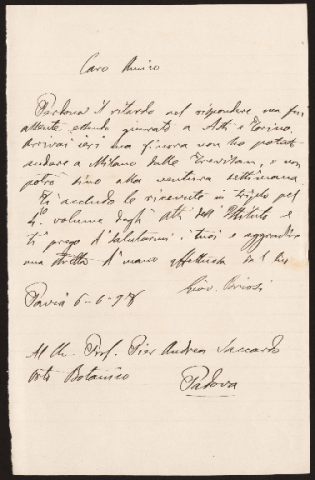 Caro Amico
Perdona il ritardo nel rispondere non fui
essendo giurato a Asti e Torino.
Arrivai ieri ma finora non ho potuto
andare a Milano dalle Trevisan, e non
potrò sino alla ventura settimana.
Ti accludo le ricevute in triplo pel
4° volume degli Atti dell'Istituto e
ti prego di salutarmi i tuoi e aggradire
una stretta d'mano affettuosa dal tuo
Giov. Briosi
Pavia 6-6-98
Al Ch. Prof. Pier Andrea Saccardo
Orto Botanico
Padova